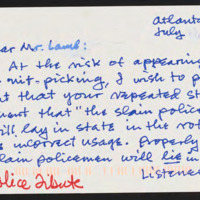 Atlanta
July
ear Mr. Lamb:
At the risk of appearing
nit-picking, I wish to p
t that your repeated st
ment that "the slain police
ill lay in state in the rot
s incorrect usage. Properly
lain policemen will lie in
Listener